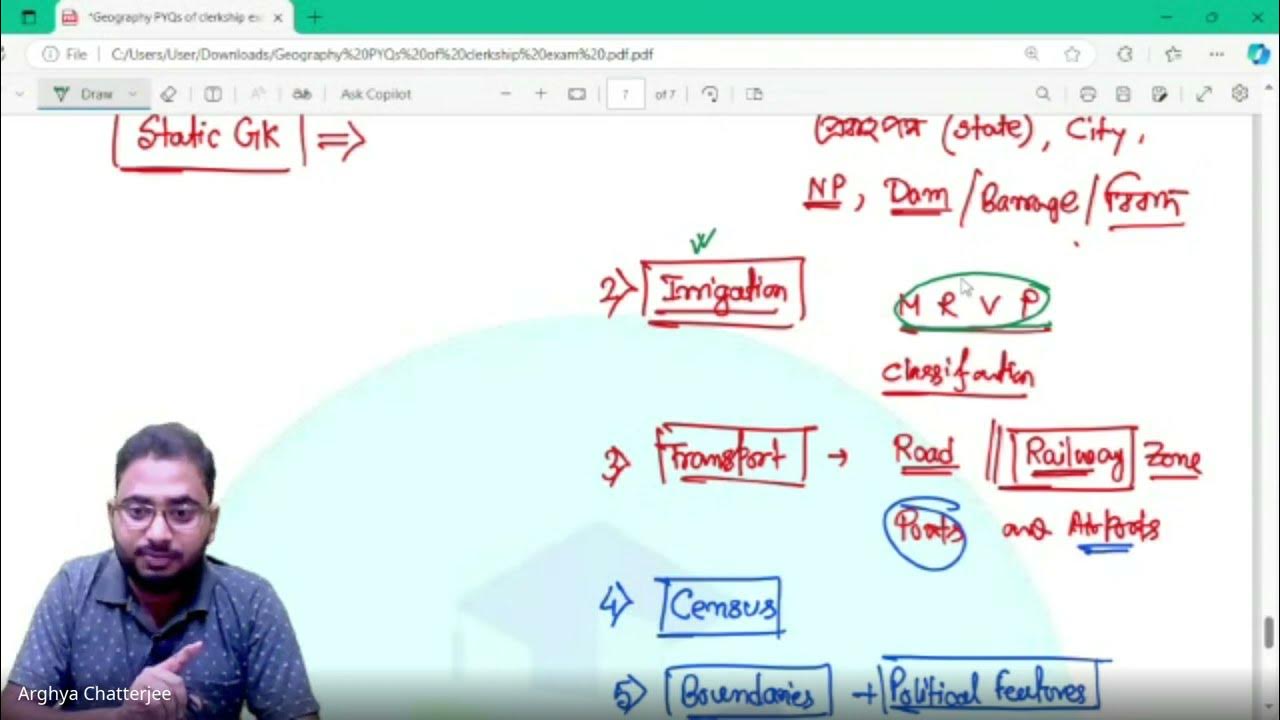 *Geography PYQs of clerkship ex
File C:/Users/User/Downloads/Geography%20PYQs%20of%20clerkship%20exam%20.pdf.pdf
Draw Ask Copilot 7 of 7
Static GK ⇒
(state), City,
NP, Dam / Barrage /
2) Irrigation
M R V P
Classification
3) Transport → Road || Railway Zone
Ports and Airports
4) Census
5) Boundaries + Political features
Arghya Chatterjee